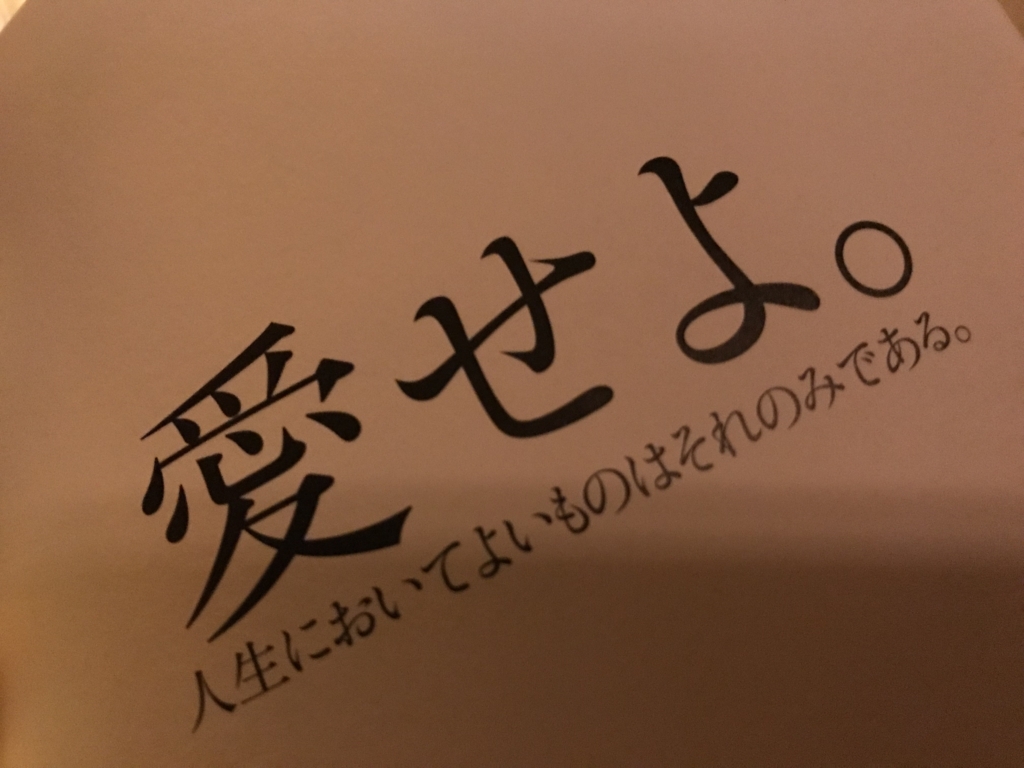 愛せよ。
人生においてよいものはそれのみである。